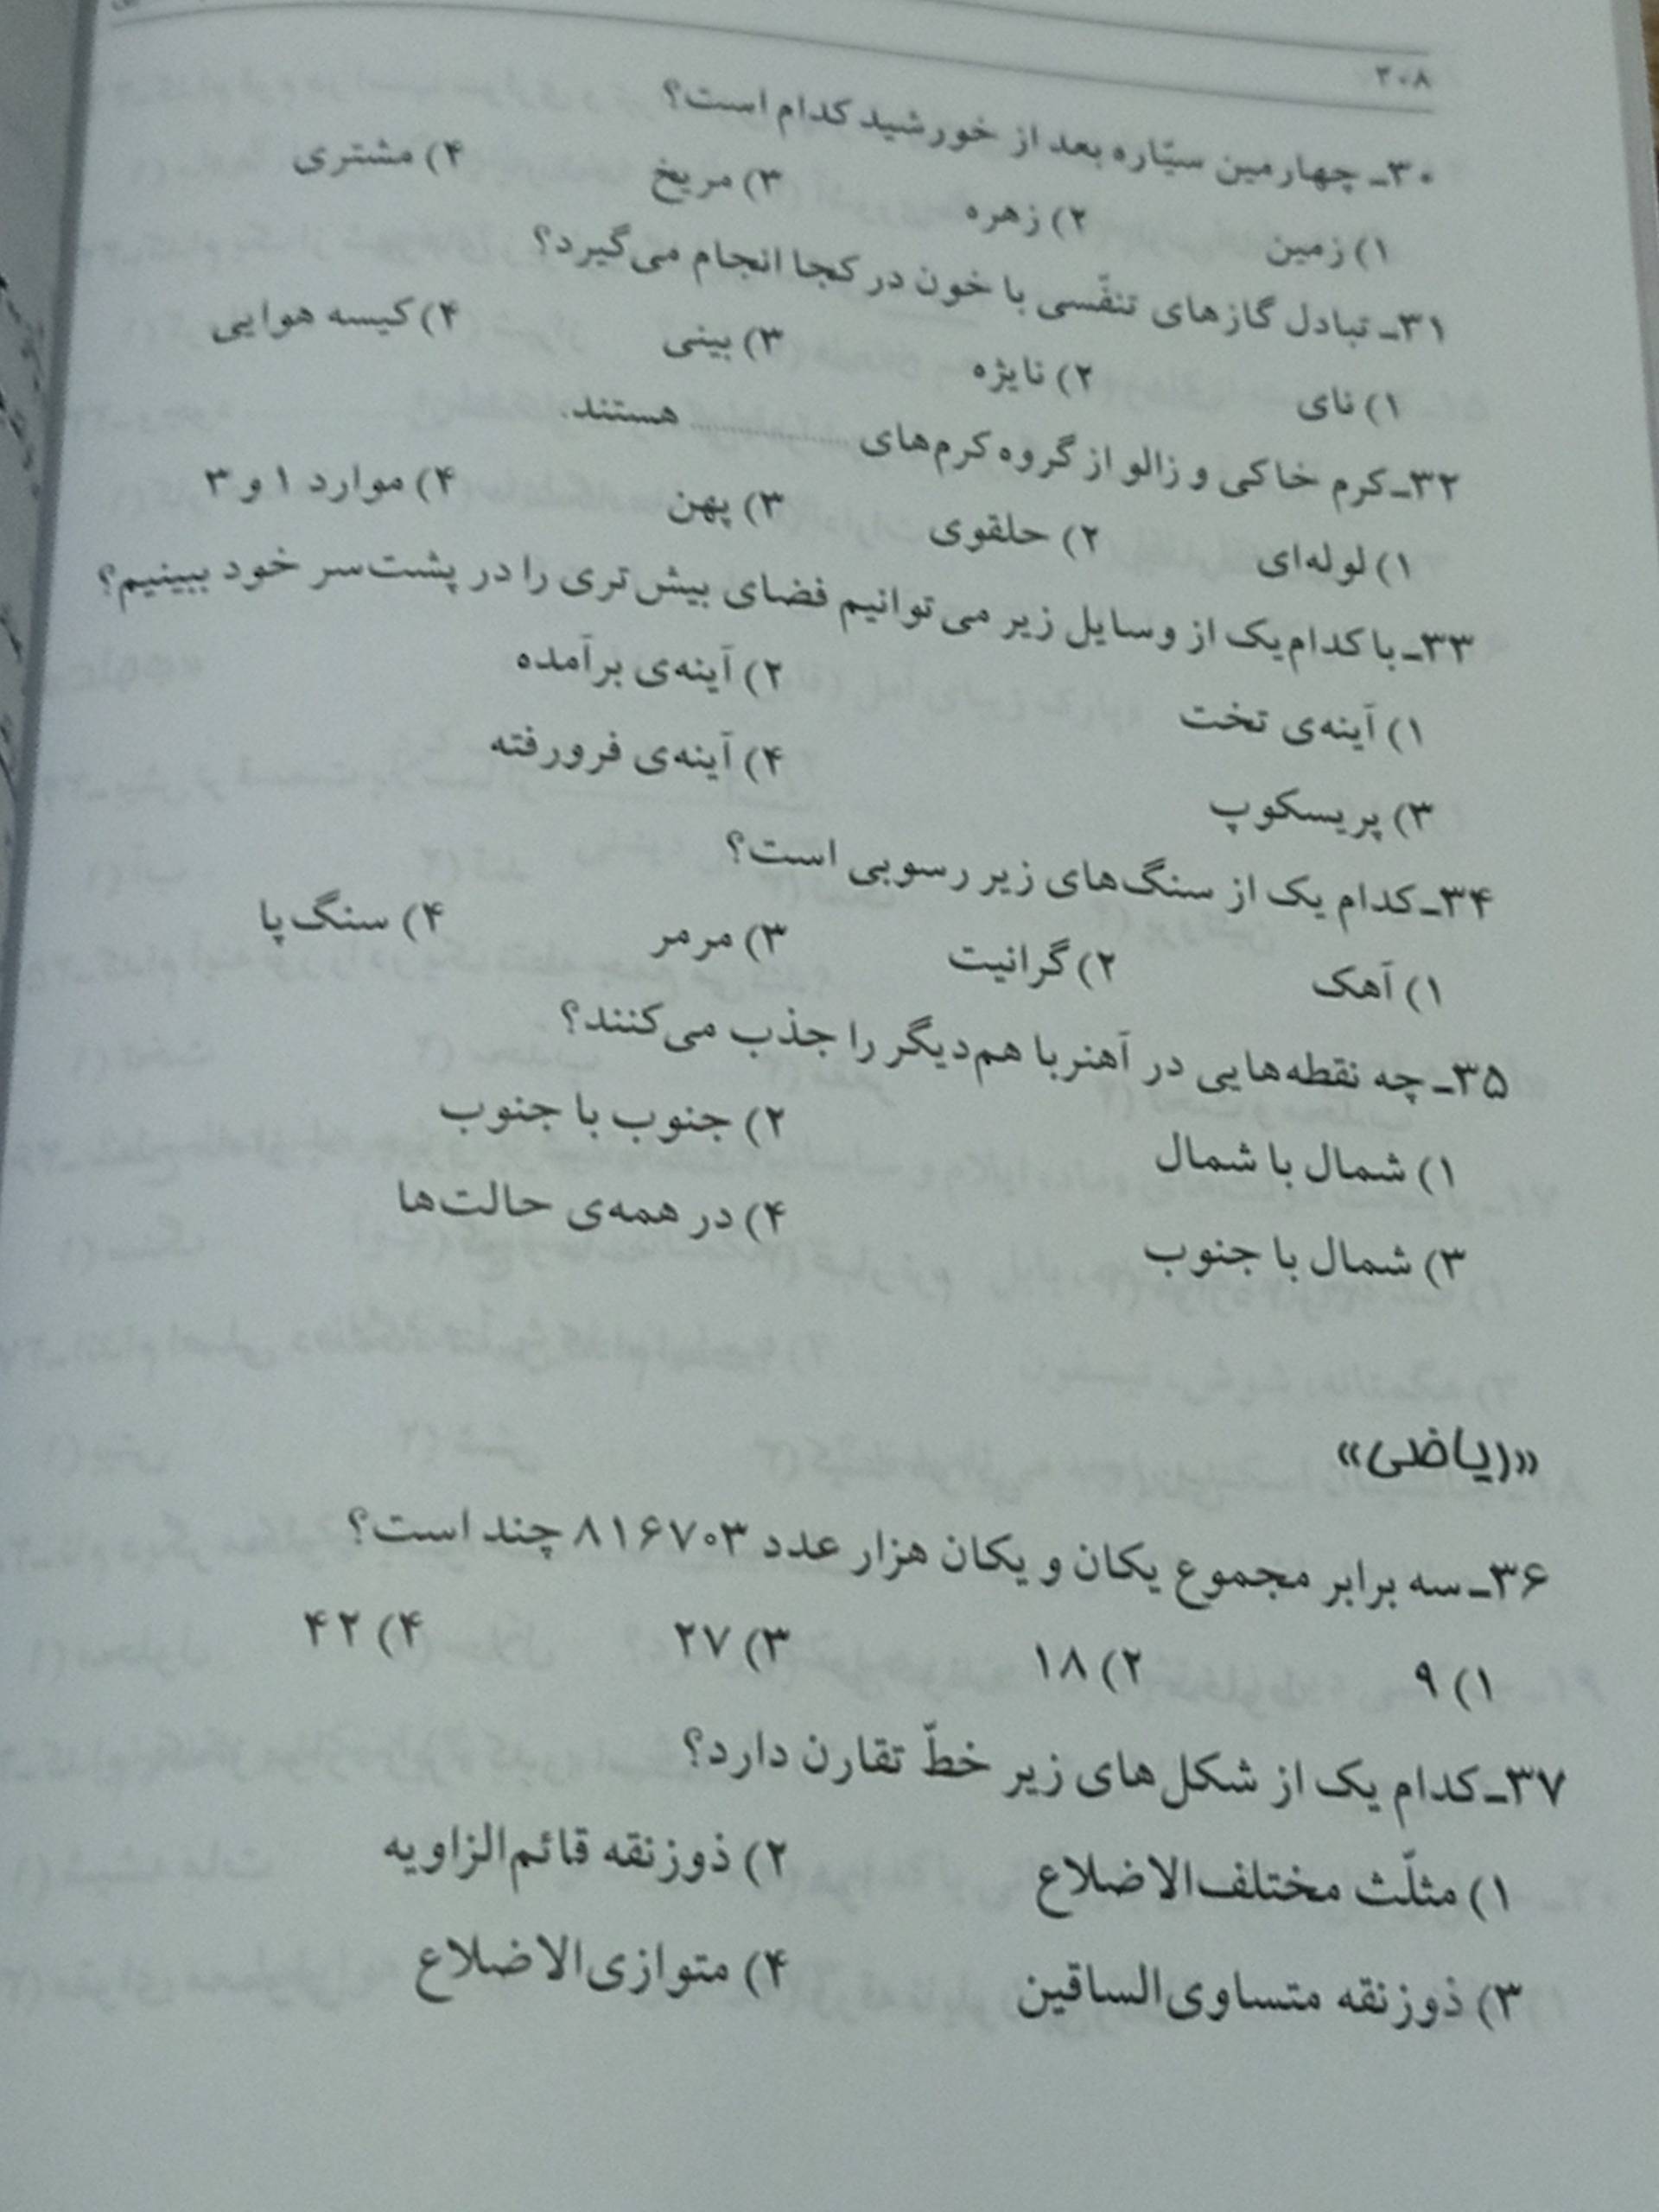 ۳۰۸
۳۰ـ چهارمین سیّاره بعد از خورشید کدام است؟
۱) زمین ۲) زهره ۳) مریخ ۴) مشتری
۳۱ـ تبادل گازهای تنفّسی با خون در کجا انجام می‌گیرد؟
۱) نای ۲) نایژه ۳) بینی ۴) کیسه هوایی
۳۲ـ کرم خاکی و زالو از گروه کرم‌های .................... هستند.
۱) لوله‌ای ۲) حلقوی ۳) پهن ۴) موارد ۱ و ۳
۳۳ـ با کدام یک از وسایل زیر می‌توانیم فضای بیش‌تری را در پشت‌سر خود ببینیم؟
۱) آینه‌ی تخت ۲) آینه‌ی برآمده
۳) پریسکوپ ۴) آینه‌ی فرورفته
۳۴ـ کدام یک از سنگ‌های زیر رسوبی است؟
۱) آهک ۲) گرانیت ۳) مرمر ۴) سنگ پا
۳۵ـ چه نقطه‌هایی در آهنربا هم‌دیگر را جذب می‌کنند؟
۱) شمال با شمال ۲) جنوب با جنوب
۳) شمال با جنوب ۴) در همه‌ی حالت‌ها
«ریاضی»
۳۶ـ سه برابر مجموع یکان و یکان هزار عدد ۸۱۶۷۰۳ چند است؟
۱) ۹ ۲) ۱۸ ۳) ۲۷ ۴) ۴۲
۳۷ـ کدام یک از شکل‌های زیر خطّ تقارن دارد؟
۱) مثلّث مختلف‌الاضلاع ۲) ذوزنقه قائم‌الزاویه
۳) ذوزنقه متساوی‌الساقین ۴) متوازی‌الاضلاع